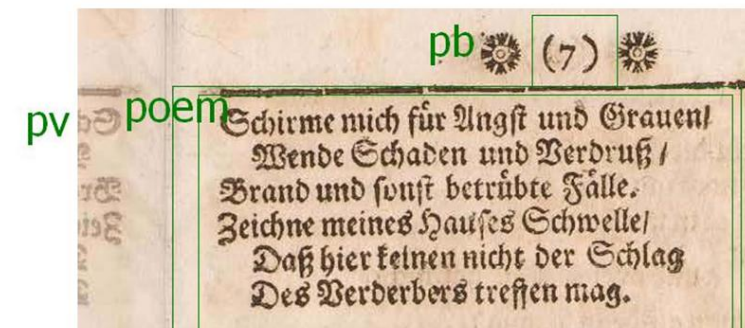 pb (7)
pv poem
Schirme mich für Angst und Grauen/
Wende Schaden und Verdruß /
Brand und sonst betrübte Fälle.
Zeichne meines Hauses Schwelle/
Daß hier keinen nicht der Schlag
Des Verderbers treffen mag.